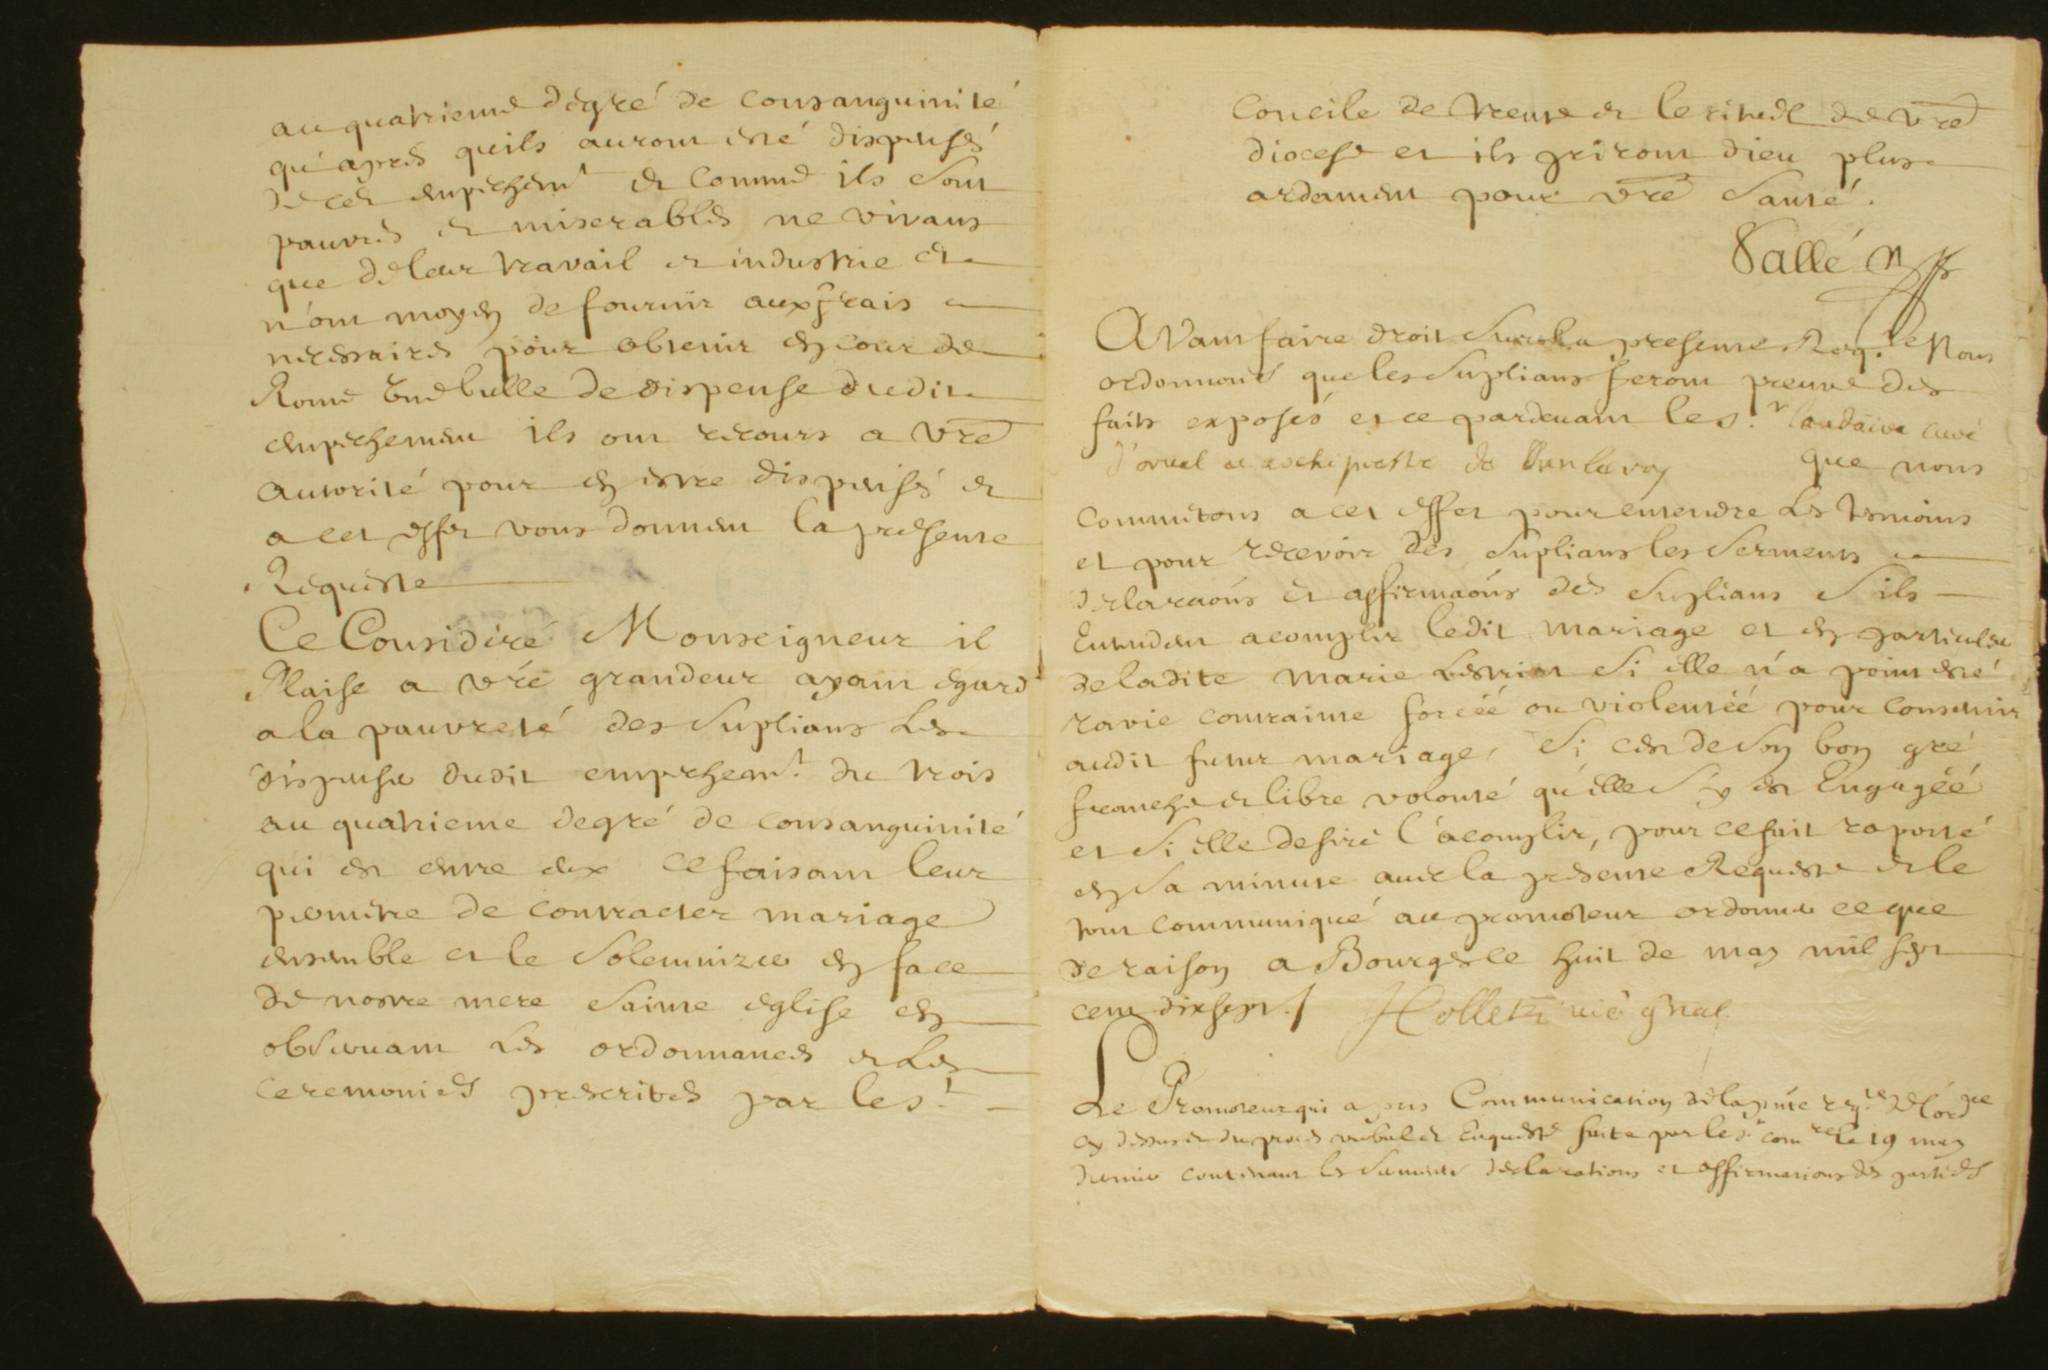 au quatrieme degré de consanguinité
qu'apres quils auront esté dispensés
de cet empeschemt et comme ils sont
pauvres et miserables ne vivans
que de leur travail et industrie et
n'ont moyen de fournir aux frais
necessaires pour obtenir en cour de
Rome une bulle de dispense dudit
empeschement ils ont recours a vre
autorité pour en estre dispensés et
a cet effet vous donnent la presente
Requeste
Ce Consideré Monseigneur il
Plaise a vré grandeur ayant egard
a la pauvreté des suplians les
dispenser dudit empeschemt du trois
au quatrieme degré de consanguinité
qui est entre eux ce faisant leur
permettre de contracter mariage
ensemble et le solemnizer en face
de nostre mere sainte eglise en
observant les ordonnances et les
ceremonies prescrites par le st
Concile de trente et le rituel de vre
diocese et ils priront dieu plus
ardament pour vre santé.
Vallé
Avant faire droit sur la presente Reqte Nous
ordonnons que les suplians feront preuve des
faits exposés et ce pardevant le sr curé
d'orval et archiprestre de que nous
commetons a cet effet pour entendre les temoins
et pour recevoir des suplians les serments
declaraõns et affirmaõns des suplians s'ils
Entendent acomplir ledit mariage et en particulier
de ladite marie si elle n'a point esté
ravie contrainte forcéé ou violentéé pour consentir
audit futur mariage, si c'est de son bon gré
franche et libre volonté qu'elle s'y est Engagéé
et si elle desire l'acomplir, pour ce fait raporté
en sa minute avec la presente Requeste et le
tout communiqué au promoteur ordonner ce que
de raison a Bourges le huit de may mil sept
cent dix sept. vic gnal
Le Promoteur qui a pris Communication de la pnte reqte de l'ordce
cy dessus et du proces verbal et Enqueste faite par le sr comre le 19 may
dernier contenant les serments declarations et affirmations des parties